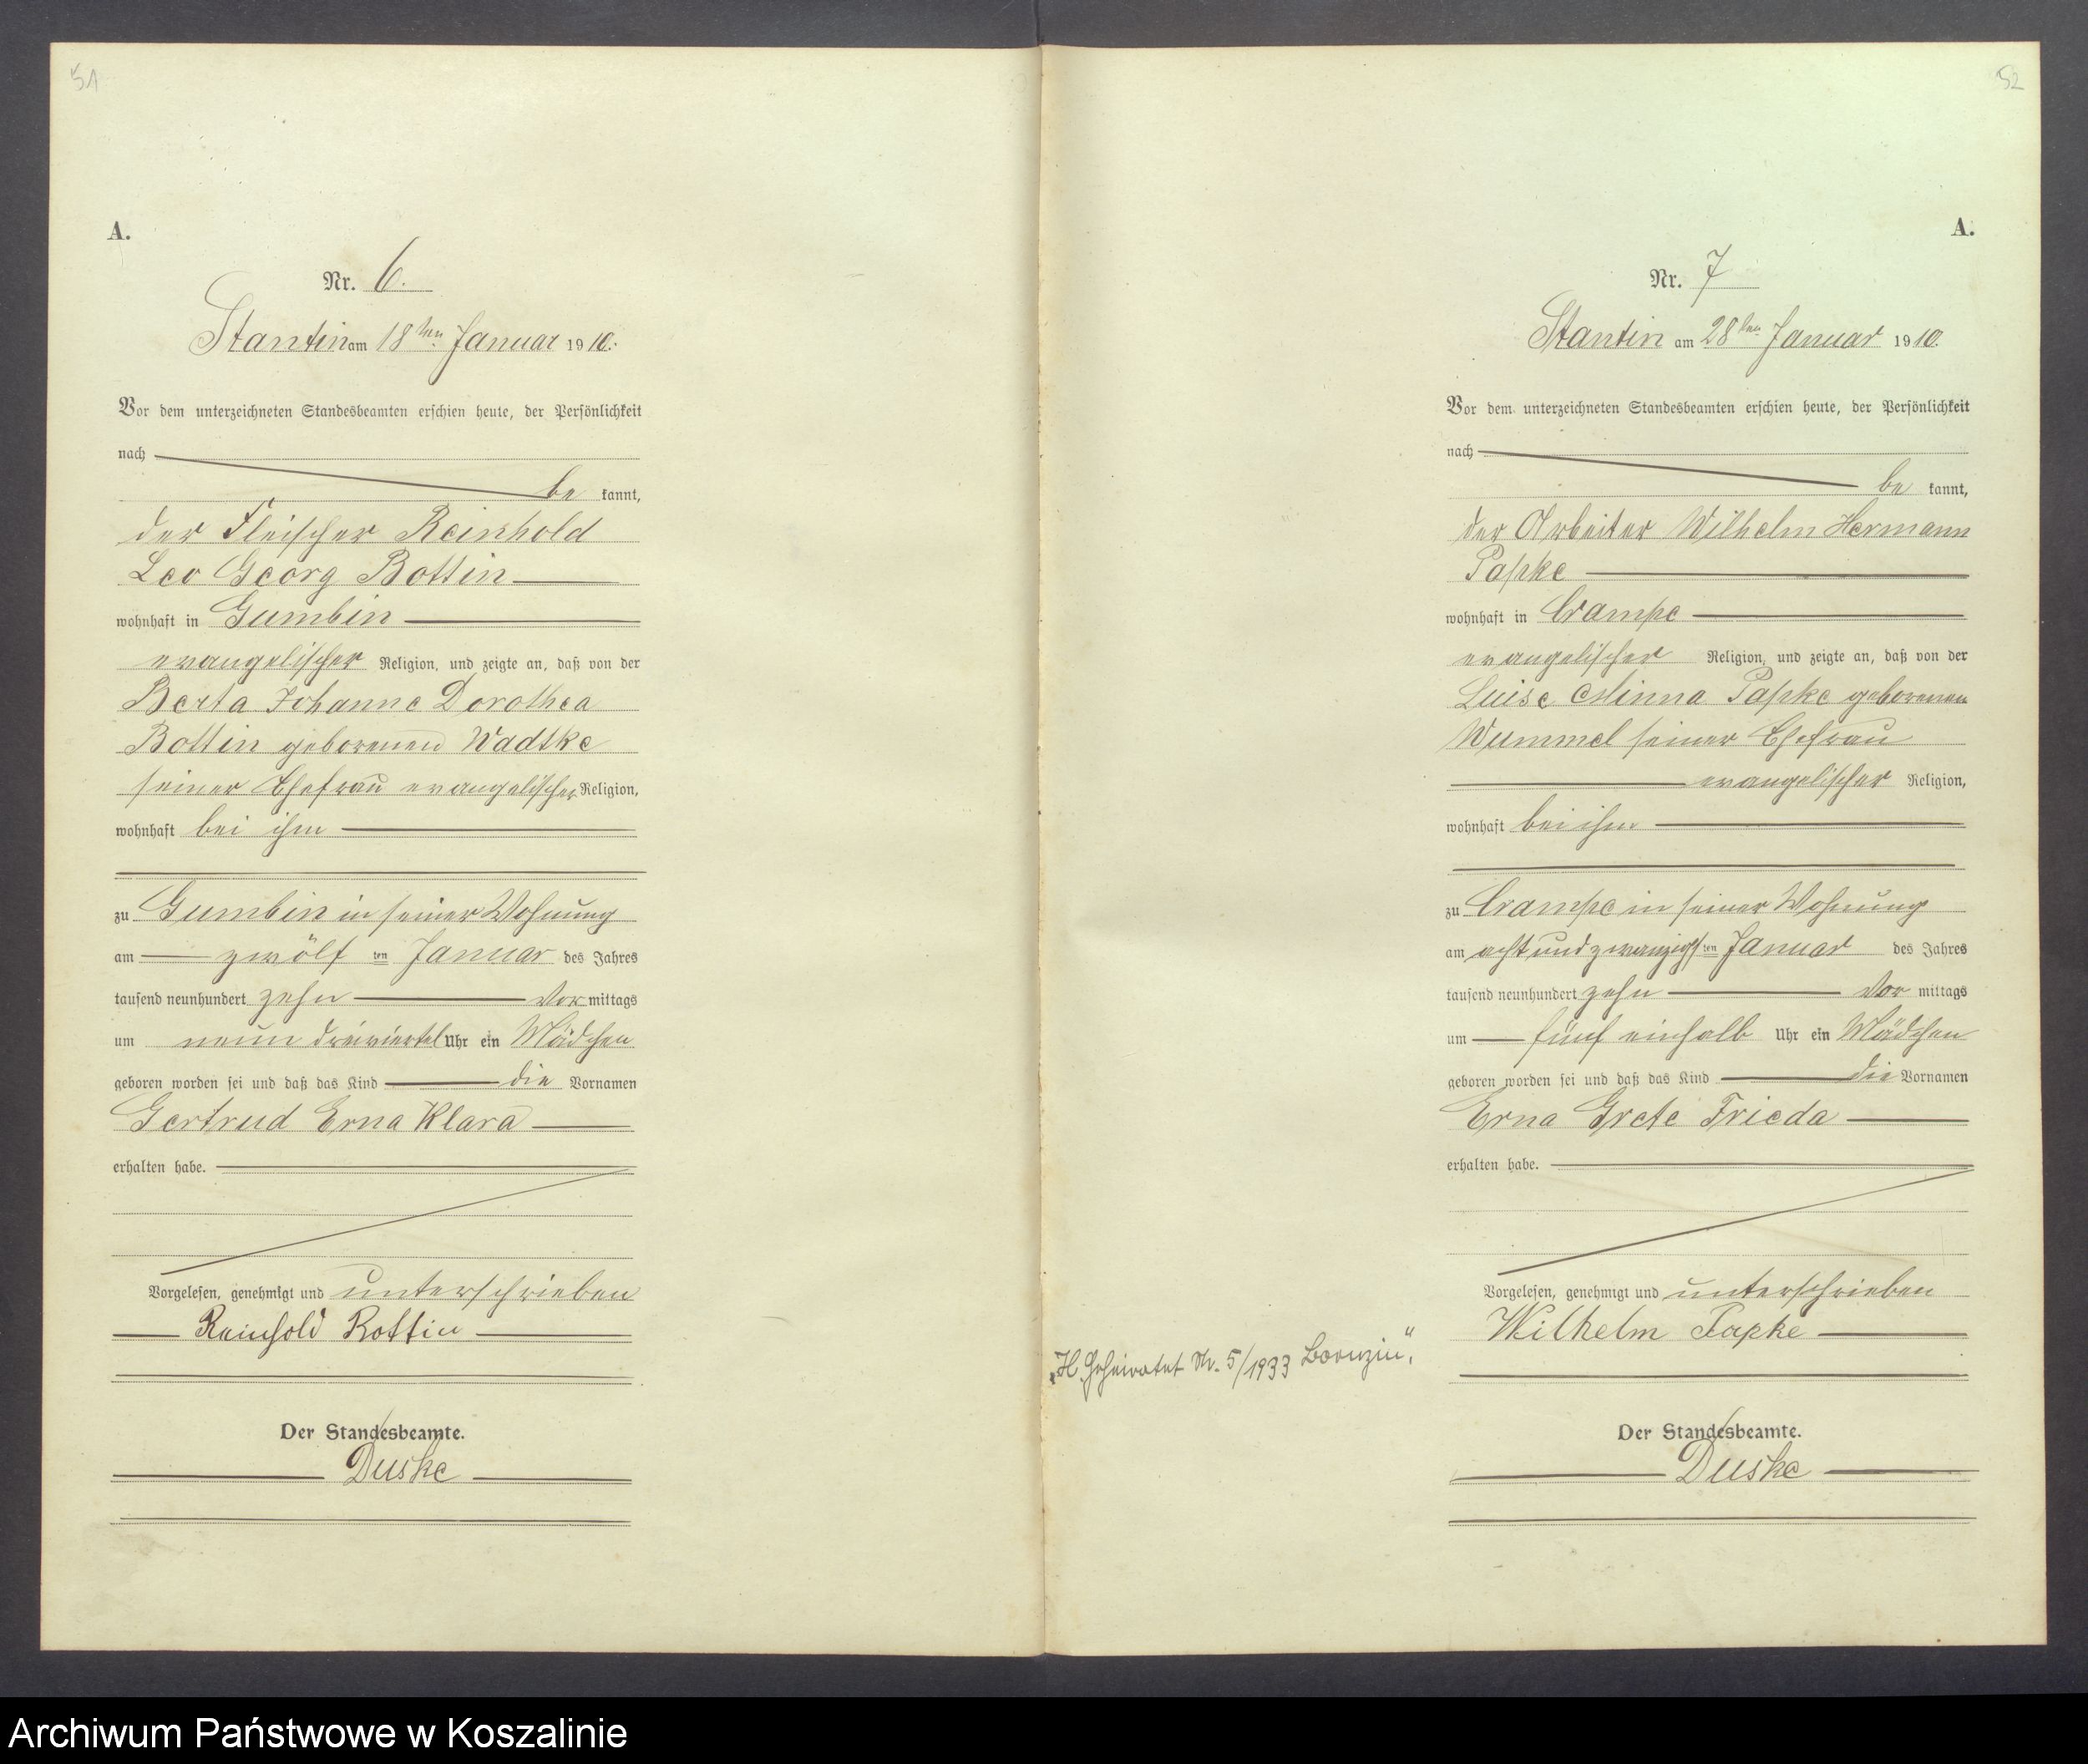 51
A.
Nr. 6.
Stantin am 18ten Januar 1910.
Vor dem unterzeichneten Standesbeamten erschien heute, der Persönlichkeit
nach
be kannt,
der Fleischer Reinhold
Leo Georg Bottin
wohnhaft in Gumbin
evangelischer Religion, und zeigte an, daß von der
Berta Johanne Dorothea
Bottin geborenen Wadtke
seiner Ehefrau evangelischer Religion,
wohnhaft bei ihm
zu Gumbin in seiner Wohnung
am zwölf ten Januar des Jahres
tausend neunhundert zehn Vor mittags
um neun dreiviertel Uhr ein Mädchen
geboren worden sei und daß das Kind die Vornamen
Gertrud Erna Klara
erhalten habe.
Vorgelesen, genehmigt und unterschrieben
Reinhold Bottin
Der Standesbeamte.
Duske
52
A.
Nr. 7
Stantin am 28ten Januar 1910.
Vor dem unterzeichneten Standesbeamten erschien heute, der Persönlichkeit
nach
be kannt,
der Arbeiter Wilhelm Hermann
Papke
wohnhaft in Crampe
evangelischer Religion, und zeigte an, daß von der
Luise Minna Papke geborenen
Wummel seiner Ehefrau
evangelischer Religion,
wohnhaft bei ihm
zu Crampe in seiner Wohnung
am acht und zwanzigs ten Januar des Jahres
tausend neunhundert zehn Vor mittags
um fünf einhalb Uhr ein Mädchen
geboren worden sei und daß das Kind die Vornamen
Erna Grete Frieda
erhalten habe.
Vorgelesen, genehmigt und unterschrieben
Wilhelm Papke
„H. Geheiratet Nr. 5/1933 Bornzin".
Der Standesbeamte.
Duske
Archiwum Państwowe w Koszalinie